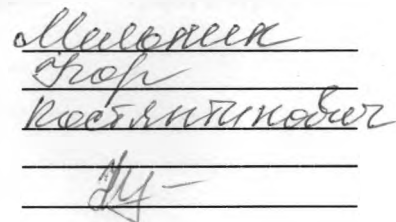 Мельник
Ігор
Костянтинович